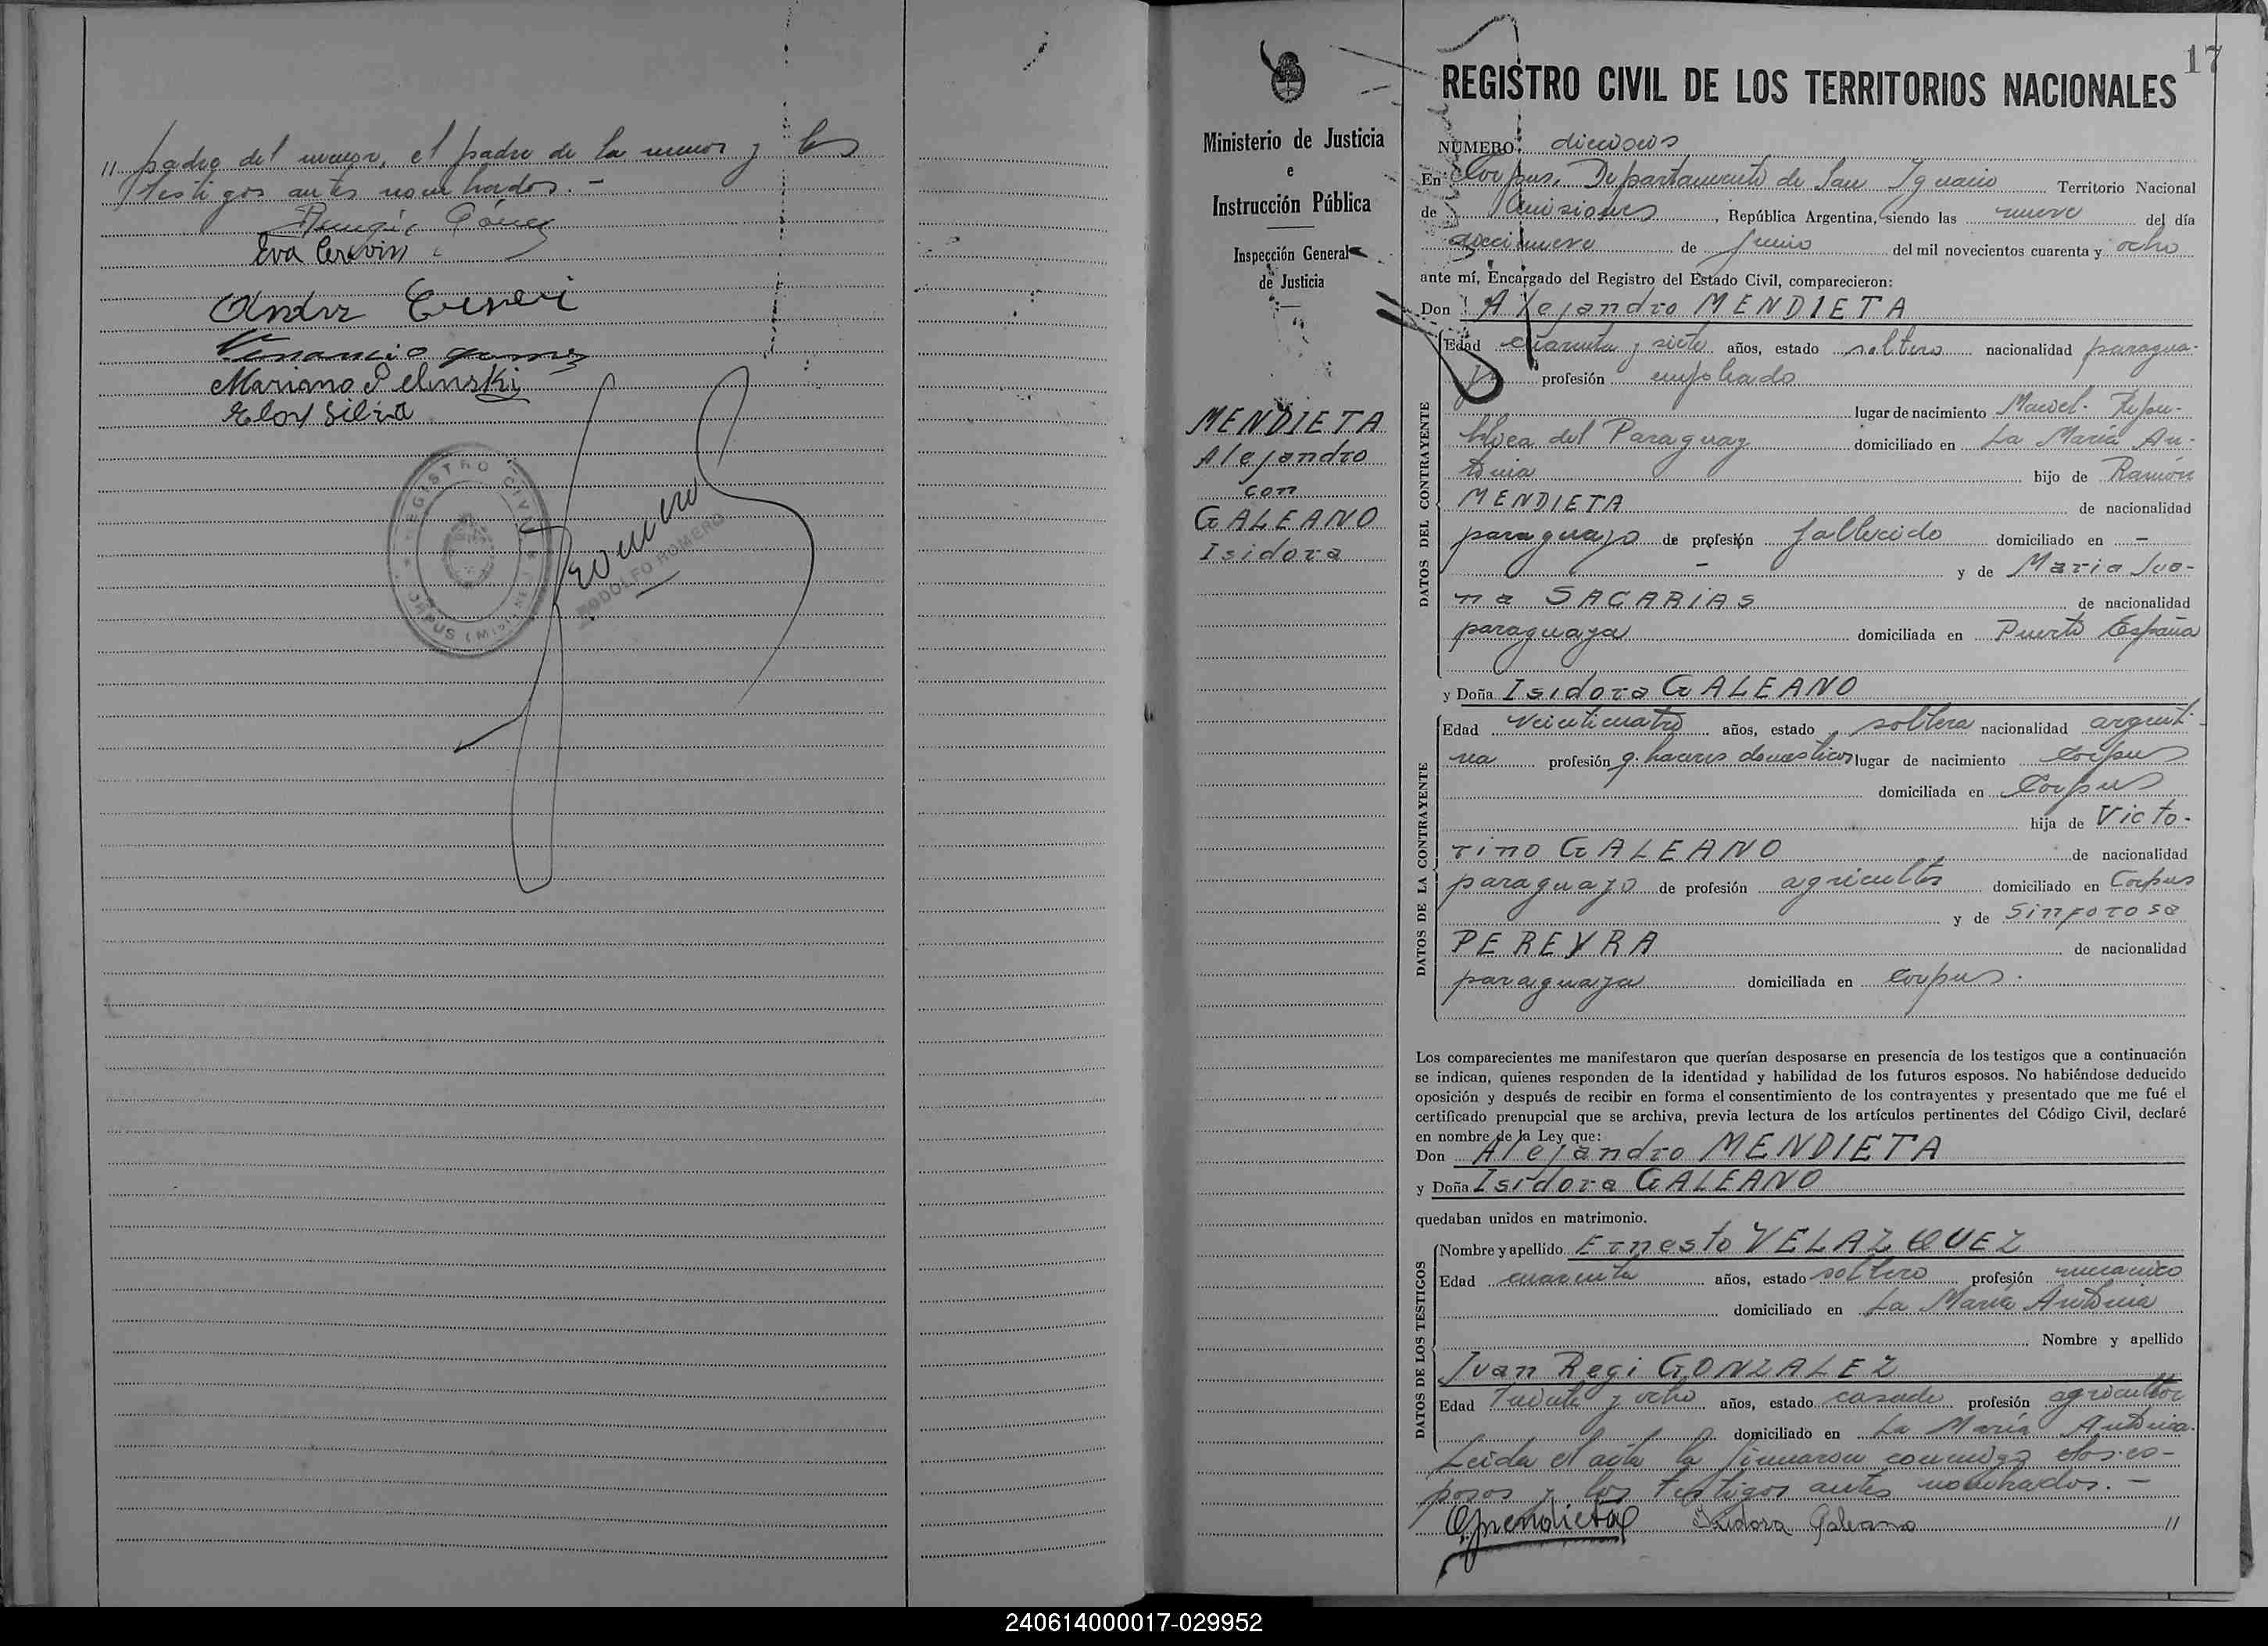 " padre del menor, el padre de la menor y los
testigos antes nombrados. -
Remigio Gómez
Eva
Andrz
Venancio gomez
Mariano Pelinski
Eloy Silva
REGISTRO CIVIL
CORPUS (MISIONES)
Romero
RODOLFO ROMERO
17
Ministerio de Justicia
e
Instrucción Pública
Inspección General
de Justicia
MENDIETA
Alejandro
con
GALEANO
Isidora
REGISTRO CIVIL DE LOS TERRITORIOS NACIONALES
NÚMERO: dieciseis
En Corpus, Departamento de San Ignacio Territorio Nacional
de Misiones, República Argentina, siendo las nueve del día
diecinueve de junio del mil novecientos cuarenta y ocho
ante mí, Encargado del Registro del Estado Civil, comparecieron:
Don Alejandro MENDIETA
DATOS DEL CONTRAYENTE
Edad cuarenta y siete años, estado soltero nacionalidad paragua-
yo profesión empleado
lugar de nacimiento Repú-
blica del Paraguay domiciliado en La María An-
tonia hijo de Ramón
MENDIETA de nacionalidad
paraguayo de profesión fallecido domiciliado en -
- y de Maria Jua-
na SACARIAS de nacionalidad
paraguaya domiciliada en Puerto España
y Doña Isidora GALEANO
DATOS DE LA CONTRAYENTE
Edad veinticuatro años, estado soltera nacionalidad argenti-
na profesión q. haceres domesticos lugar de nacimiento Corpus
domiciliada en Corpus
hija de Victo-
rino GALEANO de nacionalidad
paraguayo de profesión agricultor domiciliado en Corpus
y de Sinforosa
PEREYRA de nacionalidad
paraguaya domiciliada en Corpus.
Los comparecientes me manifestaron que querían desposarse en presencia de los testigos que a continuación
se indican, quienes responden de la identidad y habilidad de los futuros esposos. No habiéndose deducido
oposición y después de recibir en forma el consentimiento de los contrayentes y presentado que me fué el
certificado prenupcial que se archiva, previa lectura de los artículos pertinentes del Código Civil, declaré
en nombre de la Ley que:
Don Alejandro MENDIETA
y Doña Isidora GALEANO
quedaban unidos en matrimonio.
DATOS DE LOS TESTIGOS
Nombre y apellido Ernesto VELAZQUEZ
Edad cuarenta años, estado soltero profesión mecanico
domiciliado en La María Antonia
Nombre y apellido
Juan Regi GONZALEZ
Edad treinta y ocho años, estado casado profesión agricultor
domiciliado en La María Antonia.
Leida el acta la firmaron conmigo los es-
posos y los testigos antes nombrados. -
AMendieta Isidora Galeano "
240614000017-029952